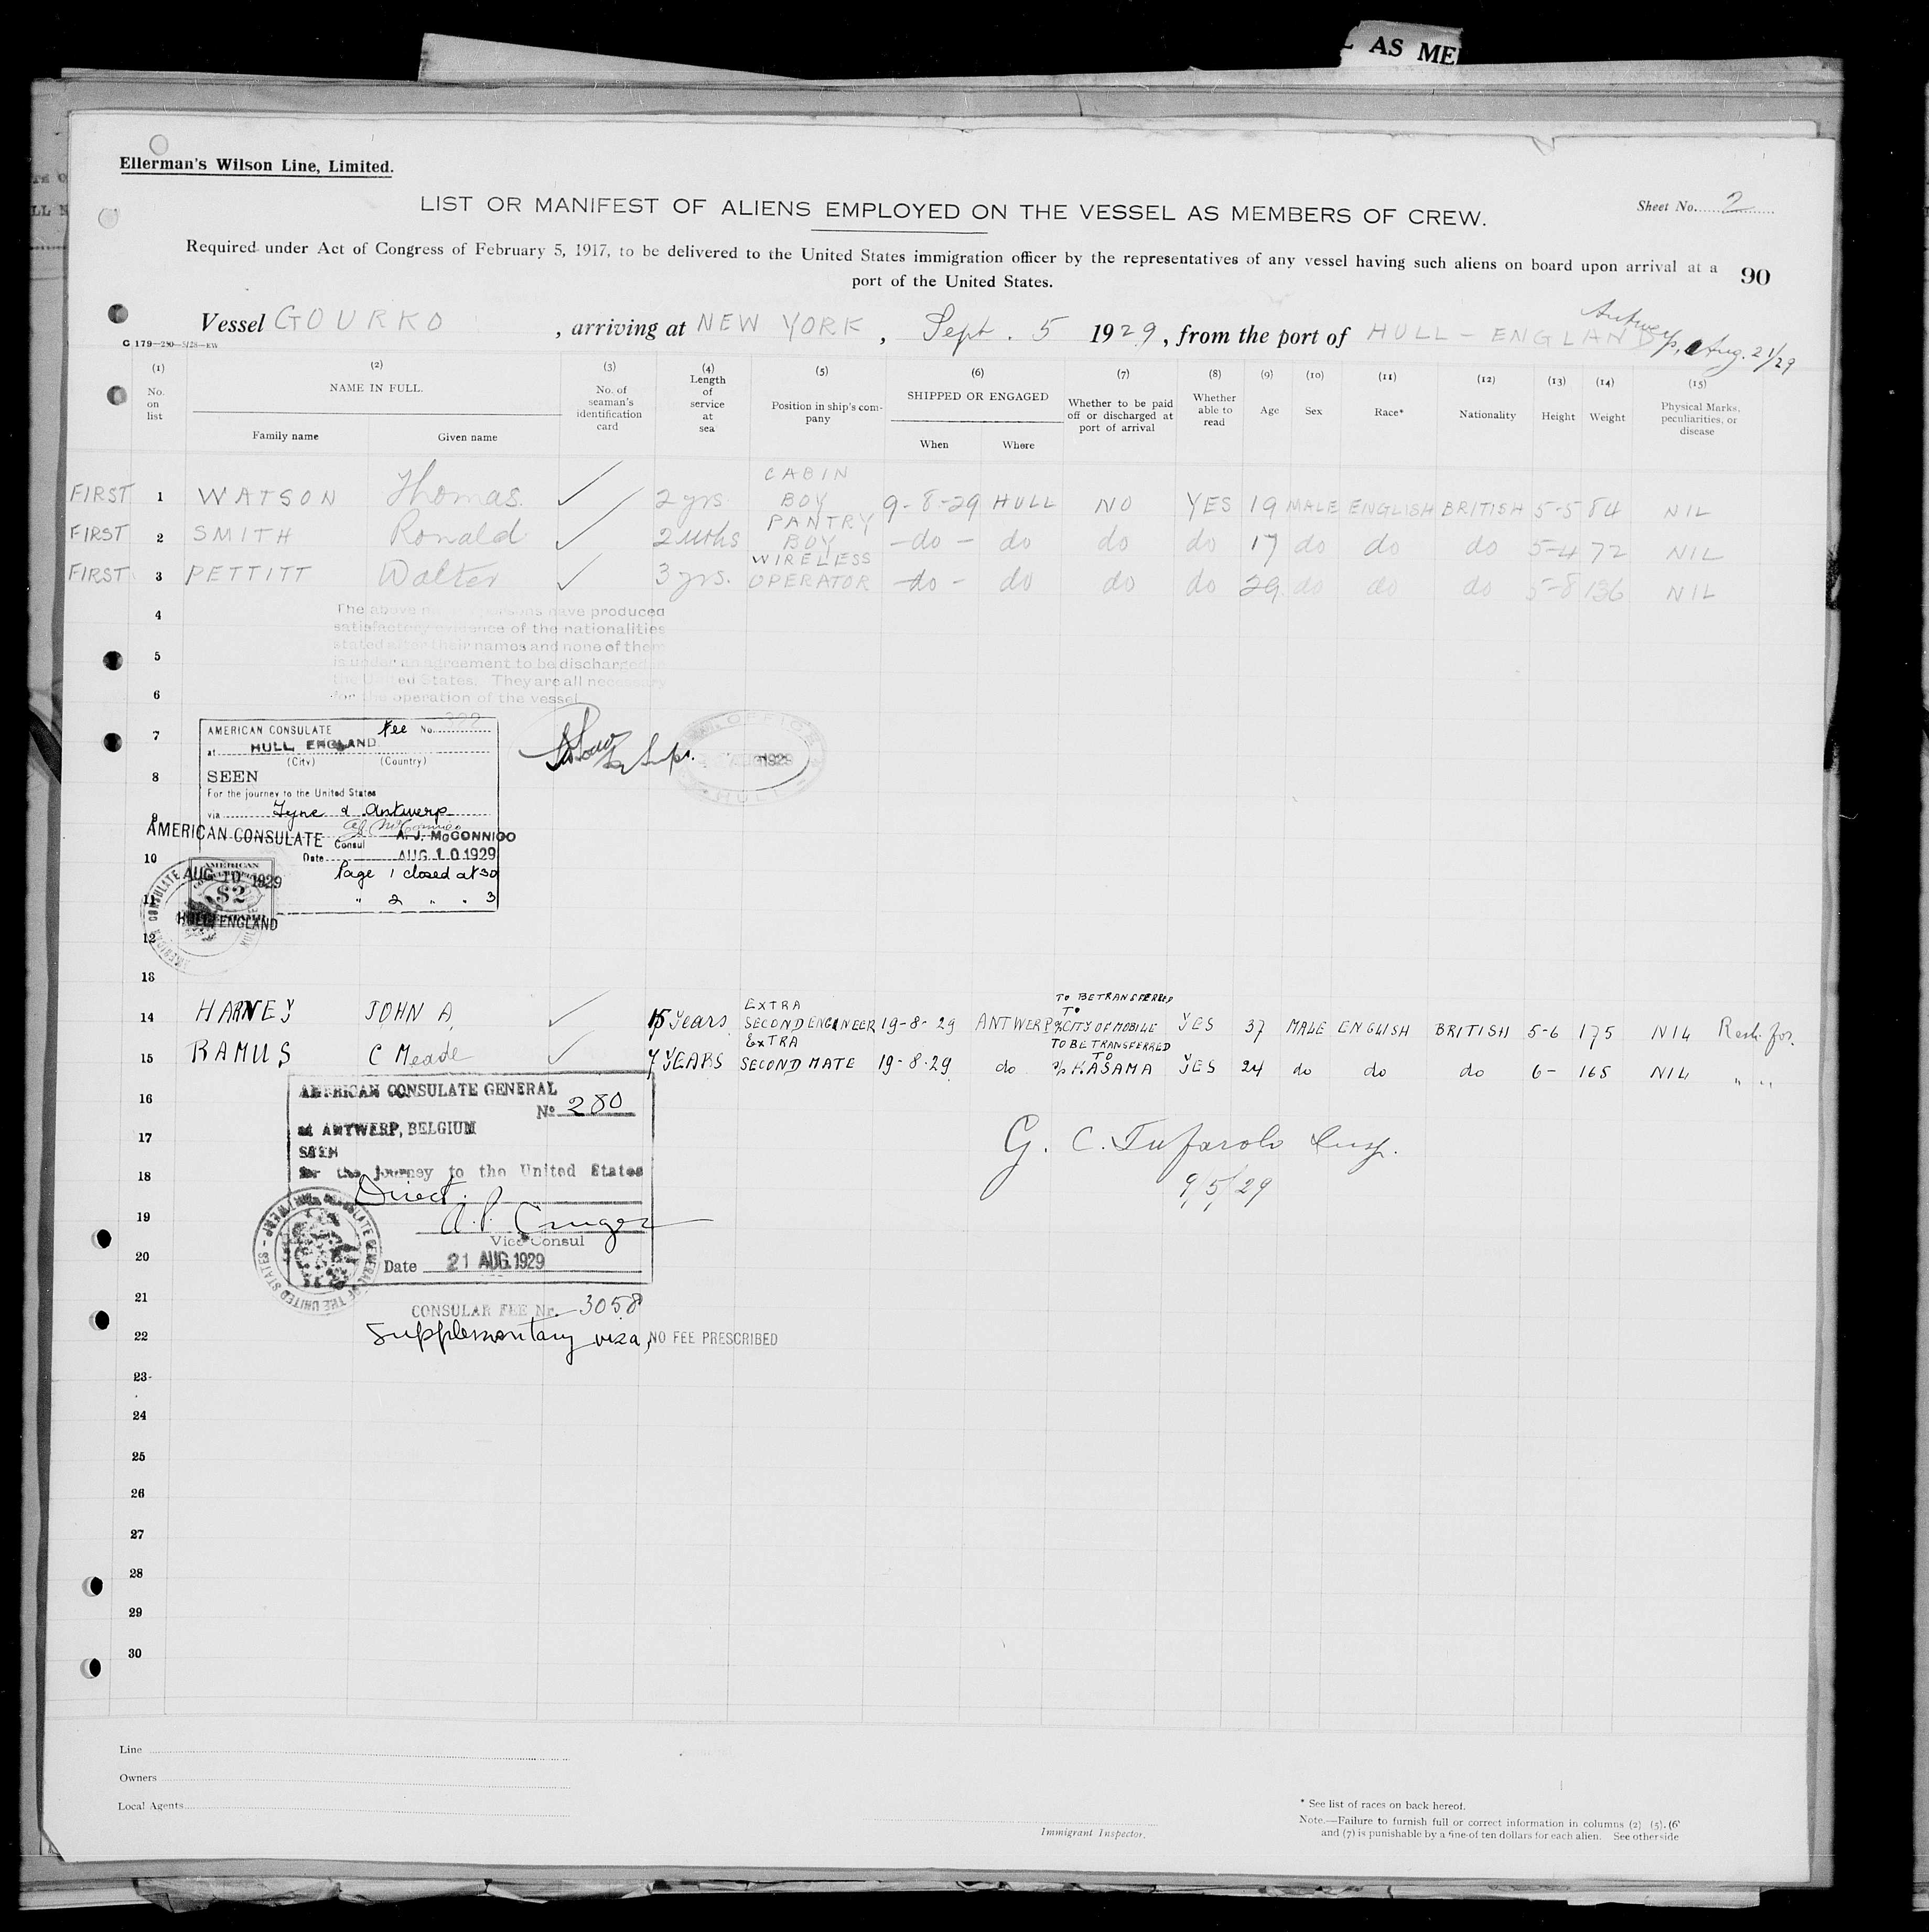 L AS ME
Ellerman's Wilson Line, Limited.
LIST OR MANIFEST OF ALIENS EMPLOYED ON THE VESSEL AS MEMBERS OF CREW.
Sheet No. 2
Required under Act of Congress of February 5, 1917, to be delivered to the United States immigration officer by the representatives of any vessel having such aliens on board upon arrival at a
port of the United States.
90
Vessel GOURKO, arriving at NEW YORK, Sept. 5 1929, from the port of HULL - ENGLAND
Antwerp, Aug. 21/29
G 179-250-5/28-EW
(1) No. on list
(2) NAME IN FULL.
Family name Given name
(3) No. of seaman's identification card
(4) Length of service at sea
(5) Position in ship's company
(6) SHIPPED OR ENGAGED
When Where
(7) Whether to be paid off or discharged at port of arrival
(8) Whether able to read
(9) Age
(10) Sex
(11) Race*
(12) Nationality
(13) Height
(14) Weight
(15) Physical Marks, peculiarities, or disease
FIRST 1 WATSON Thomas. ✓ 2 yrs. CABIN BOY 9-8-29 HULL NO YES 19 MALE ENGLISH BRITISH 5-5 84 NIL
FIRST 2 SMITH Ronald ✓ 2 mths PANTRY BOY -do- do do do 17 do do do 5-4 72 NIL
FIRST 3 PETTITT Walter ✓ 3 yrs. WIRELESS OPERATOR -do- do do do 29 do do do 5-8 136 NIL
4
The above persons have produced
satisfactory evidence of the nationalities
stated after their names and none of them
5
is under an agreement to be discharged in
the United States. They are all necessary
6
for the operation of the vessel
7
AMERICAN CONSULATE Fee No.
at HULL, ENGLAND.
(City) (Country)
8
SEEN
For the journey to the United States
9
via Tyne & Antwerp
AMERICAN CONSULATE
Consul A. J. McCONNICO
10
Date AUG 10 1929
AUG 10 1929
Page 1 closed at 30
11
" 2 " " 3
AMERICAN
$2
HULL, ENGLAND
AUG 1929
HULL
12
13
14 HARVEY JOHN A. ✓ 15 Years EXTRA SECOND ENGINEER 19-8-29 ANTWERP TO BE TRANSFERRED TO S/S CITY OF MOBILE YES 37 MALE ENGLISH BRITISH 5-6 175 NIL
15 RAMUS C Meade ✓ 7 YEARS EXTRA SECOND MATE 19-8-29 do TO BE TRANSFERRED TO S/S KASAMA YES 24 do do do 6- 165 NIL " "
AMERICAN CONSULATE GENERAL
16
No 280
at ANTWERP, BELGIUM
17
SEEN
for the journey to the United States
18
Direct.
19
Vice Consul
20
Date 21 AUG. 1929
21
CONSULAR FEE Nr. 3058
22
Supplementary visa, NO FEE PRESCRIBED
G. C. Tufarolo Insp.
9/5/29
23
24
25
26
27
28
29
30
Line
Owners
Local Agents
Immigrant Inspector.
* See list of races on back hereof.
Note.—Failure to furnish full or correct information in columns (2) (5), (6)
and (7) is punishable by a fine of ten dollars for each alien. See other side